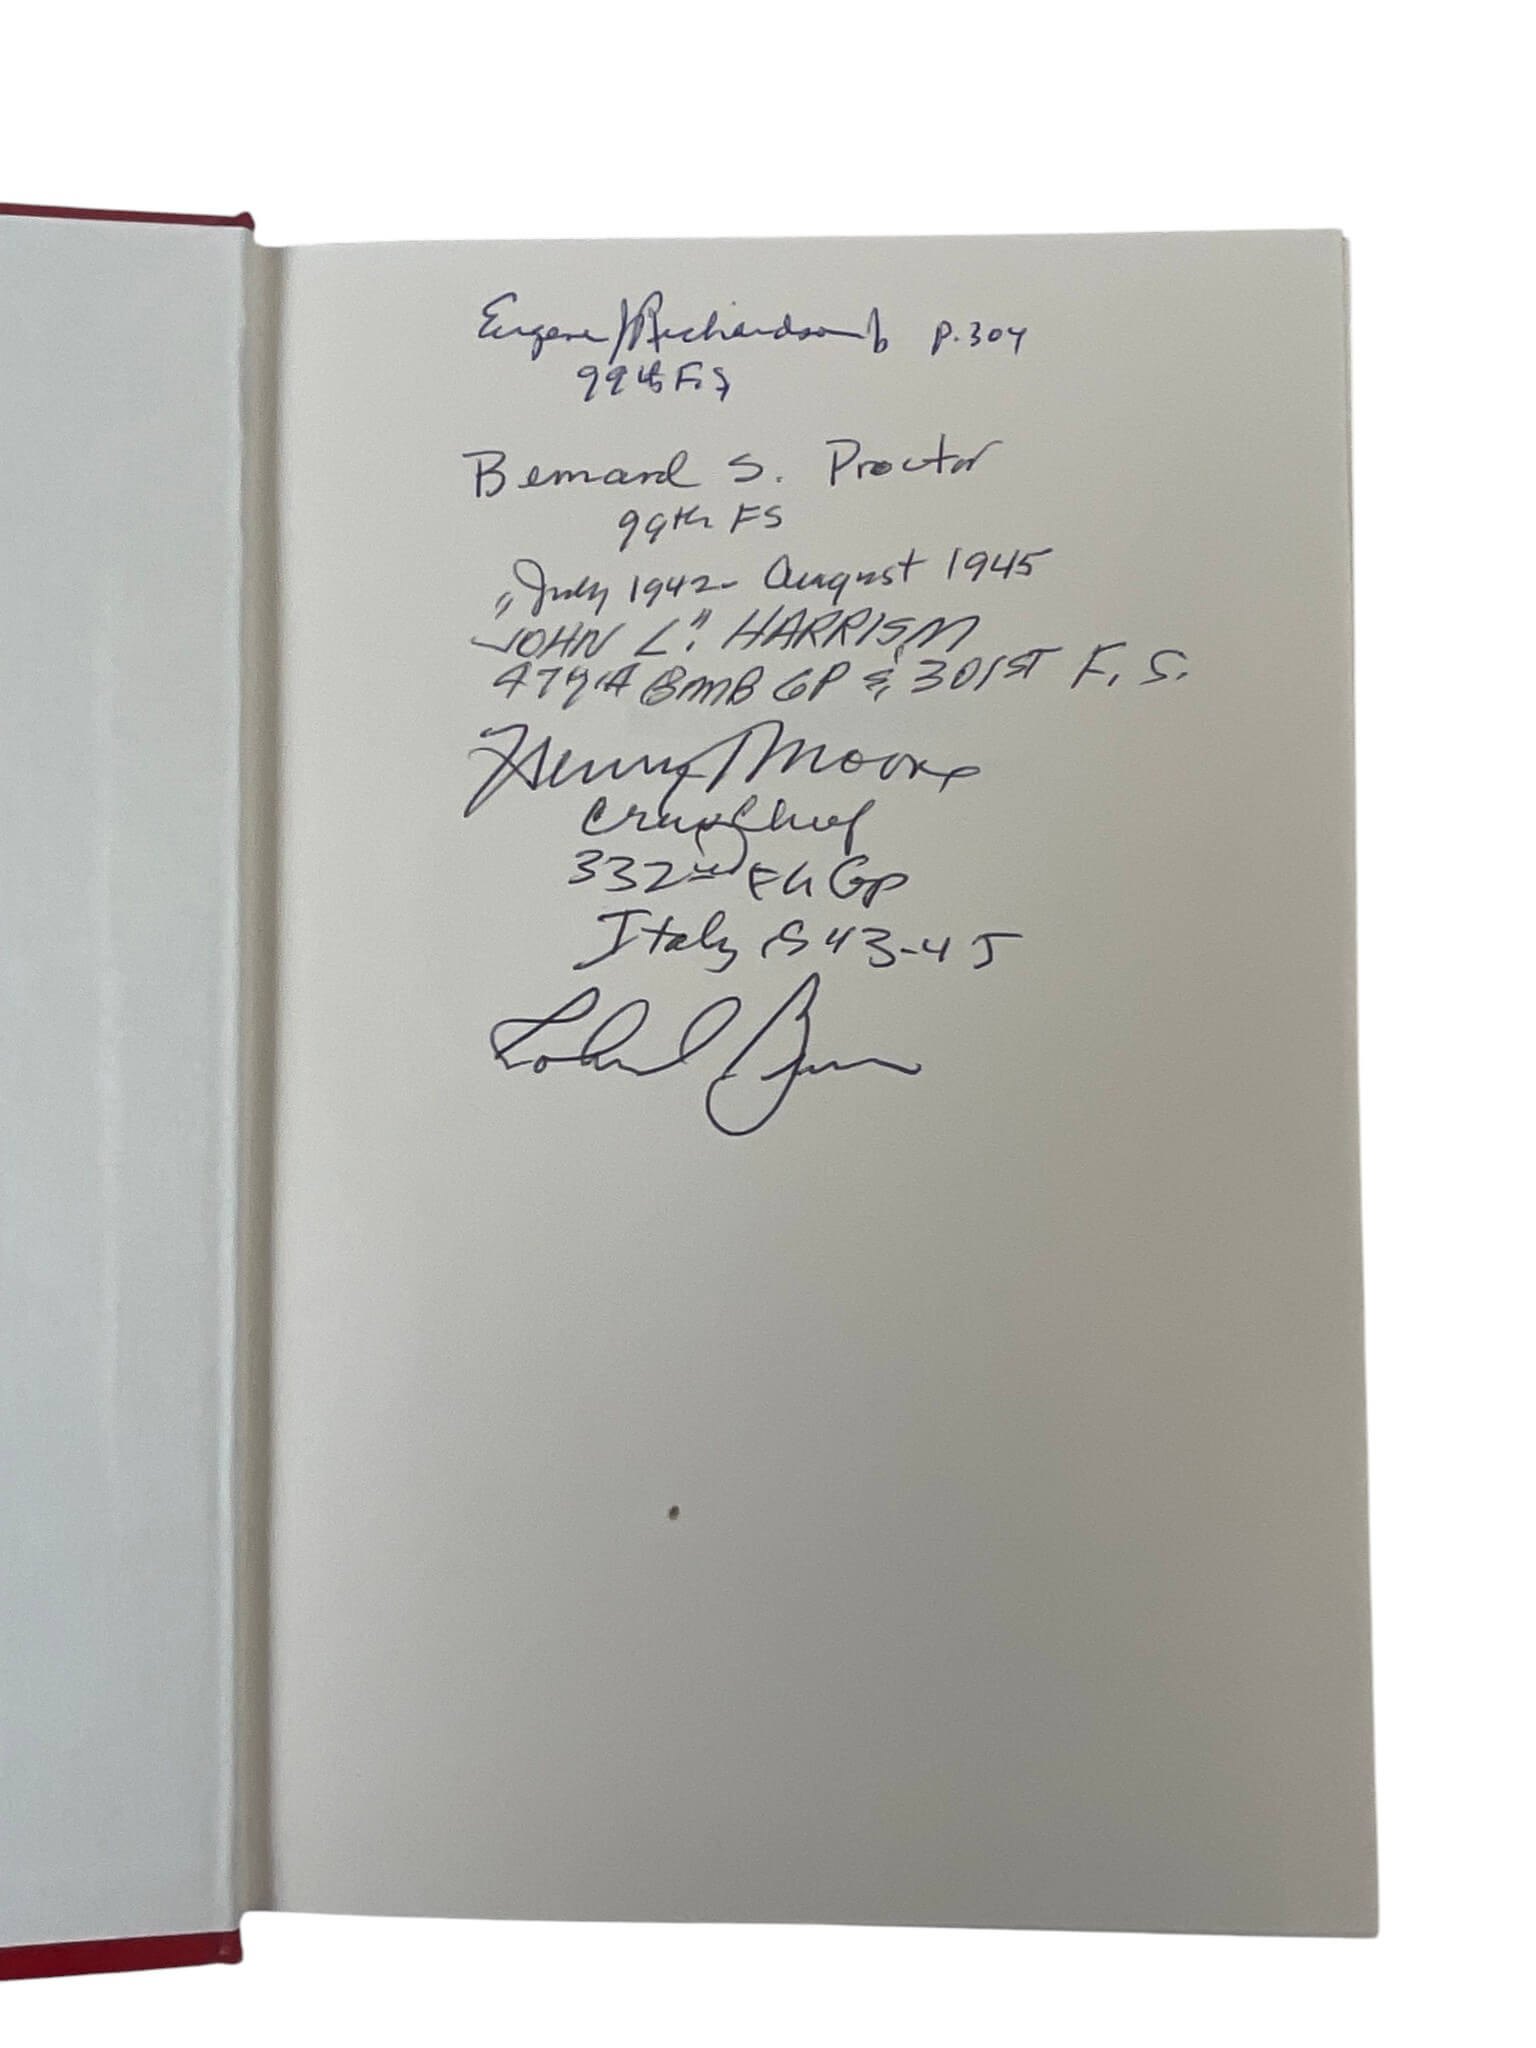 Eugene J Richardson Jr P.304
99th F.S
Bernard S. Proctor
99th FS
"July 1942- August 1945
JOHN L." HARRISON
477th BMB GP & 301ST F.S.
Henry Moore
Crew Chief
332nd Ft Gp
Italy 1943-45